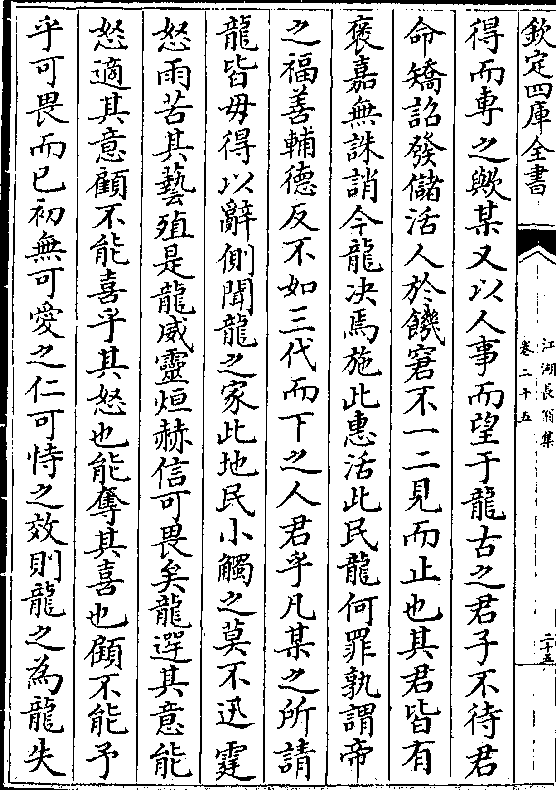 欽定四庫全書
江湖長翁集
卷二十五
二十五
得而專之歟某又以人事而望于龍古之君子不待君
命矯詔發儲活人於饑窘不一二見而止也其君皆有
褒嘉無誅誚今龍决焉施此惠活此民龍何罪孰謂帝
之福善輔德反不如三代而下之人君乎凡某之所請
龍皆毋得以辭側聞龍之家此地民小觸之莫不迅霆
怒雨苦其藝殖是龍威靈烜赫信可畏矣龍逞其意能
怒適其意顧不能喜乎其怒也能奪其喜也顧不能予
乎可畏而已初無可愛之仁可恃之效則龍之為龍失